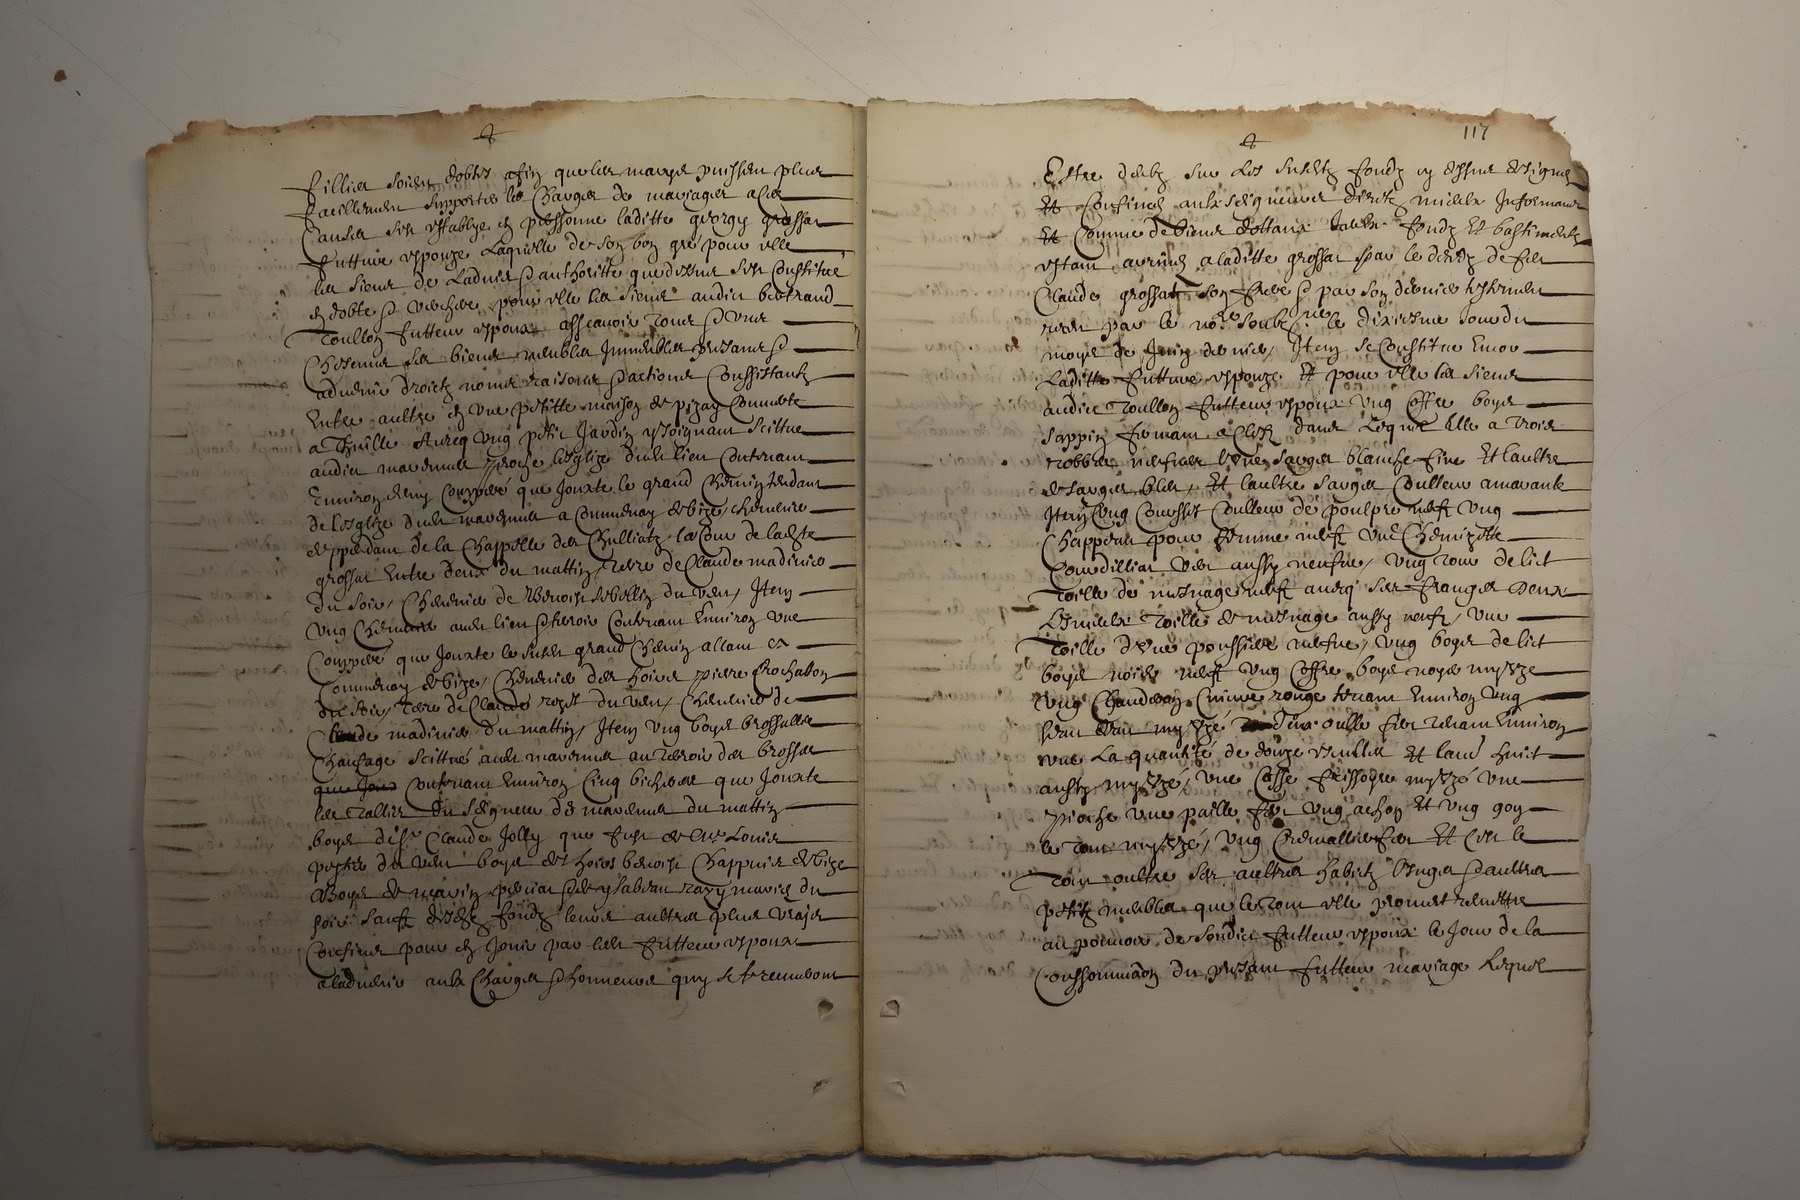 filles soient dobtés afin que les maryés puissent plus
facillement supporter les charges de mariages a ces
causes s'est establye en personne laditte georgy grossat
futture espouze laquelle de son bon gré pour elle
les siens de ladvis & authoritté que dessus s'est constitué
en dobte & verchere pour elle les siens audict bertrand
Toullon futteur espoux assçavoir tous & uns
chescuns ses biens meubles immeubles presants &
advenir droictz noms raisons & actions conssistantz
entre aultre en une petitte maison de pizay couverte
a thuille avecq ung petit jardin y joignant scittue
audict marennes proche lesglize dudict lieu contenant
environ demy coupperé que jouxte le grand chemin tendant
de lesglize dudict marennes a communay de bize, chenevier
deppendant de la chappelle des la cour de ladicte
grossat entre deux du mattin, terre de Claude madinier
du soir, chenevier de Benoist du vent, Item
ung chenevier audict lieu & terroir contenant environ une
coupperé que jouxte le susdict grand chemin allant a
communay de bize, chenevier des hoirs pierre Rochatton
du soir, terre de Claude du vent, chenevier de
Claude madinier du mattin, Item ung boys brossalles
chaufage scittué audict marennes au terroir des brosses
que joux contenant environ cinq bicherés que jouxte
les tallis du seigneur de marennes du mattin
boys de sr Claude Jolly que fust de Me Louis
du vent boys des hoirs benoist Chappuis de bize
& boys de & de ysabeau mariés du
soir sauft desdictz fondz leurs aultres plus vrays
confins pour en jouir par ledict futteur espoux
a ladvenir aulx charges & honneurs quy se treuveront
117
Estre deubz sur les susdictz fondz cy dessus designés
Et confinés aulx seigneurs directz mieulx informant
Et comme de biens dottaux lesdictz fondz et bastimentz
estant advenus a laditte grossat par le decedz de feu
Claude grossat son frere & par son dernier testement
receu par le nore soubzné le dixiesme jour du
moys de juing dernier, Item se constitue encor
Laditte futture espouze Et pour elle les siens
audict Toullon futteur espoux ung coffre boys
sappin fermant a clefz dans lequel elle a trois
robbes neufves l'une sarges blanche fine Et laultre
de sarges bleu, Et laultre sarges coulleur amarante
Item ung coursset coulleur de poulpre neuf ung
chappeau pour femme neuf une chemizette
cordilliat vert aussy neufve, ung tour de lict
toille de mesnage neuf avecq ses franges deux
linceulx toille de mesnage aussy neufz, une
toille d'une poussiere neufve, ung boys de lict
boys noier neuf ung coffre boys noyer myzzé
ung chauderon cuivre rouge tenant environ ung
seau deau myzzé deux oulle fer tenant environ
une la quantité de douze escuelles Et laud huict
aussy myzzé, une casse frissoyre myzzé une
pioche une paille fer ung achon Et ung goy
le tout myzzé, ung cremallier fer Et c'est le
tout oultre ses aultres habitz linges & aultres
petitz meubles que le tout elle promet remettre
au pouvoir de sondict futteur espoux le jour de la
conssommaon du presant futteur mariage lequel